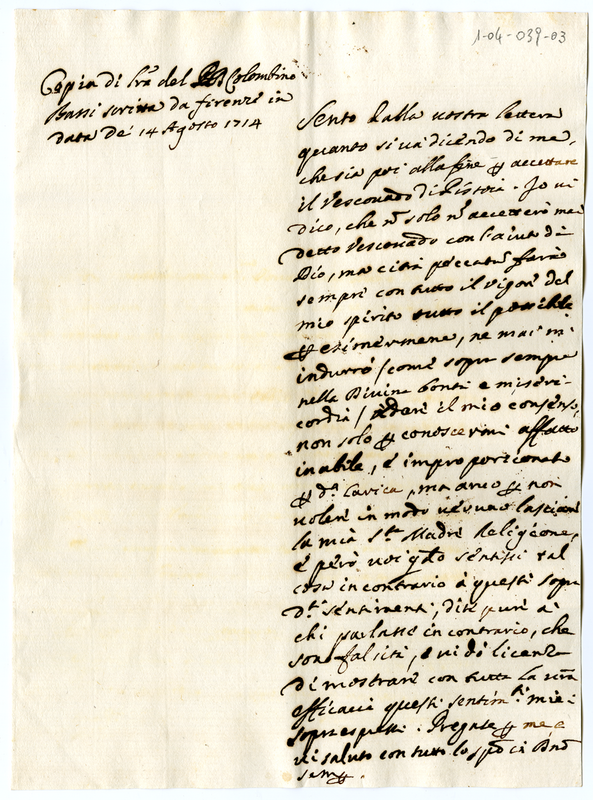 1-04-039-03
Copia di lra del P. Colombino
Bassi scritta da firenze in
data de' 14 Agosto 1714
Sento dalla vostra lettera
quanto si va dicendo di me,
che sia poi alla fine p accettare
il Vescovado di Pistoia. Io vi
dico, che n solo n accetterò mai
detto Vescovado con l'aiuto di
Dio, ma citrà peccatu farò
sempre con tutto il vigore del
mio spirito tutto il possibile
p esimermene, ne mai m'
indurrò / come sopra sempre
nella Divina bontà e miseri-
cordia / a dare il mio consenso,
non solo p conoscermi affatto
inabile, e improporzionato
p d.a Carica, ma anco p non
volere in modo veruno lasciare
la mia S.ta Madre Religione,
e però voi qdo sentissi tal
cosa in contrario à questi sopra
d.ti sentimenti, dite pure à
chi parlasse in contrario, che
sono falsità, e vi dò licenza
di mostrare con tutta la
efficacia questi sentim.ti miei
sopraespressi. Pregate p me e
vi saluto con tutto lo spō ci Bnd
semp.